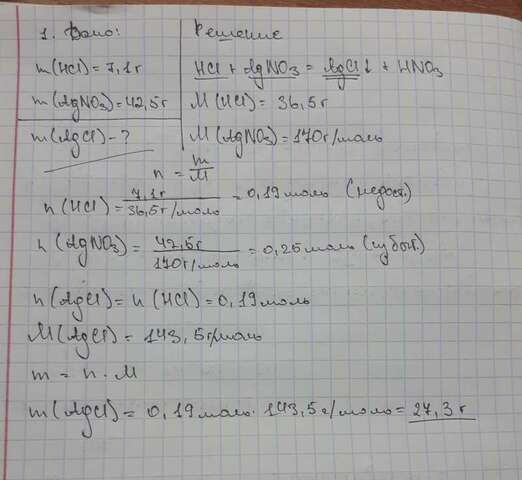 1. Дано:
Решение
m(HCl)=7,1г
HCl + AgNO3 = AgCl↓ + HNO3
m(AgNO3)=42,5г
M(HCl)= 36,5г
m(AgCl)-?
M(AgNO3)=170г/моль
n = m/M
n(HCl)= 7,1г/36,5г/моль = 0,19моль (недост.)
n(AgNO3)= 42,5г/170г/моль =0,25моль (избыт.)
n(AgCl)= n(HCl)=0,19моль
M(AgCl)= 143,5г/моль
m = n · M
m(AgCl)= 0,19моль · 143,5г/моль= 27,3 г